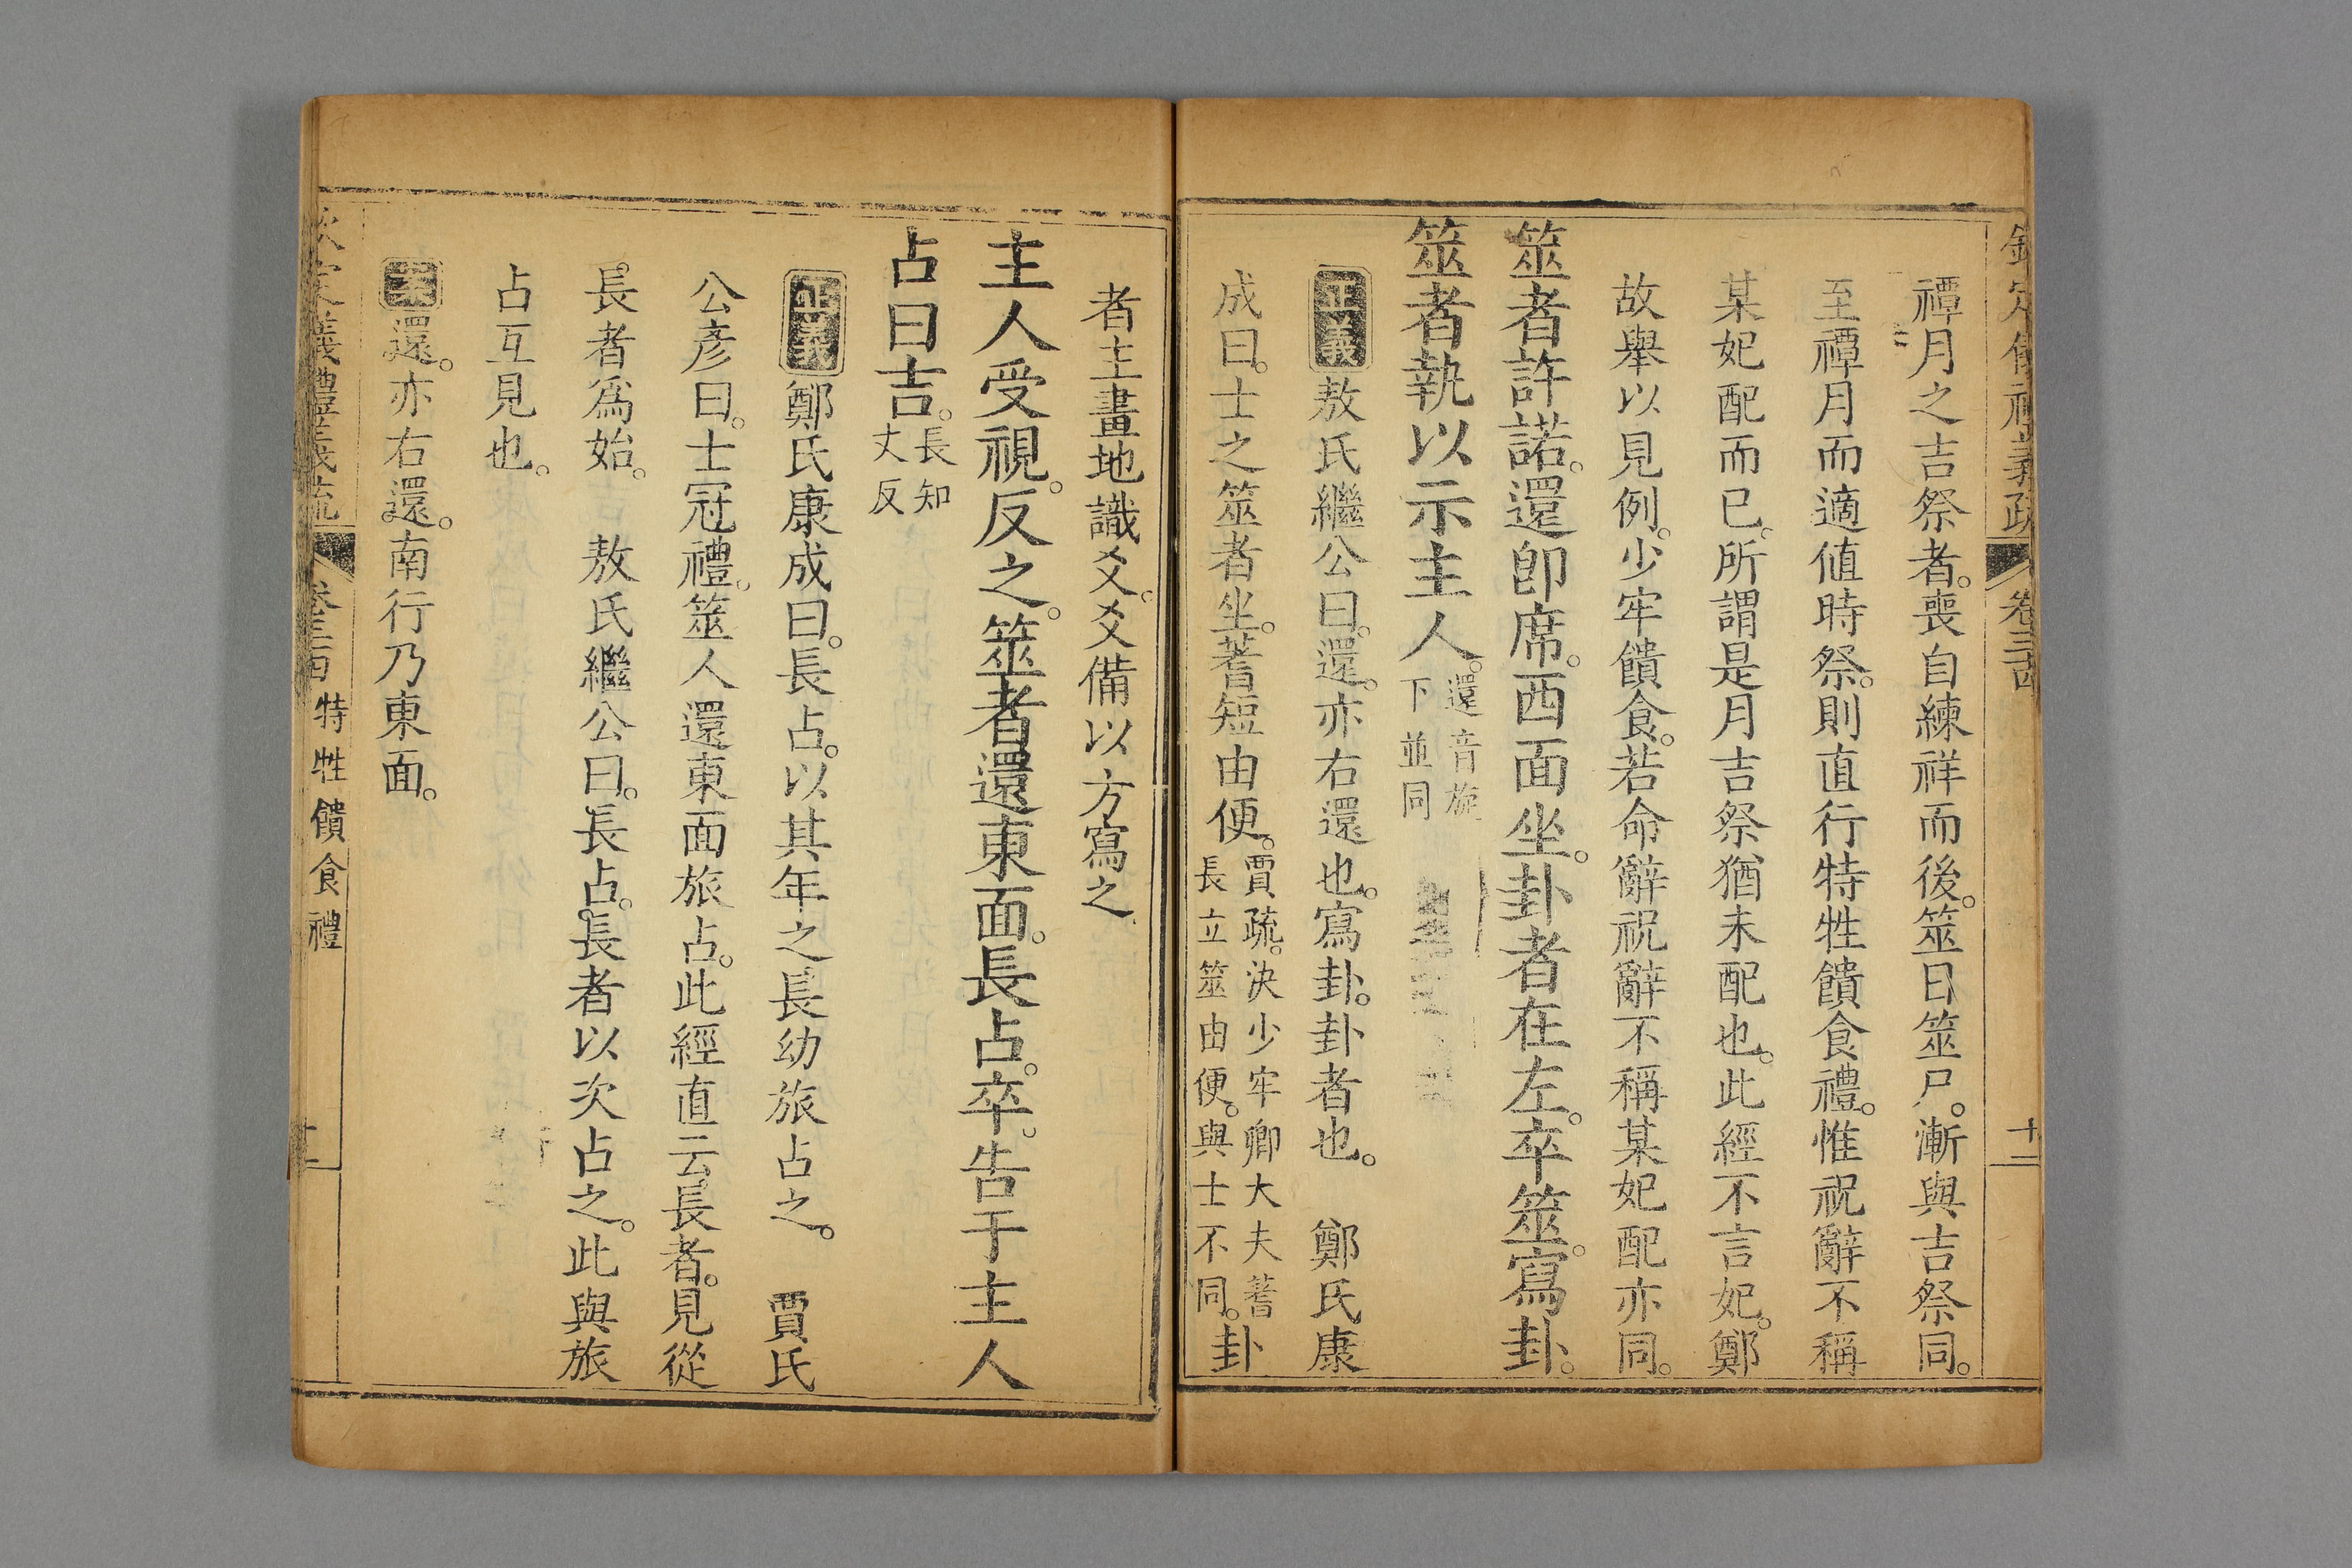 禫月之吉祭者。喪自練祥而後。筮日筮尸。漸與吉祭同。
至禫月而適値時祭。則直行特牲饋食禮。惟祝辭不稱
某妃配而已。所謂是月吉祭猶未配也。此經不言妃。鄭
故舉以見例。少牢饋食。若命辭祝辭不稱某妃配亦同。
筮者許諾。還卽席。西面坐。卦者在左。卒筮。寫卦。
筮者執以示主人。還音旋下並同
正義敖氏繼公曰。還。亦右還也。寫卦。卦者也。　鄭氏康
成曰。士之筮者坐。蓍短由便。賈疏。決少牢卿大夫蓍長立筮由便。與士不同。卦
者主畫地識爻。爻備以方寫之
主人受視。反之。筮者還東面。長占。卒。告于主人
占曰吉。長知丈反
正義鄭氏康成曰。長占。以其年之長幼旅占之。　賈氏
公彥曰。士冠禮。筮人還東面旅占。此經直云長者。見從
長者爲始。　敖氏繼公曰。長占。長者以次占之。此與旅
占互見也。
案還。亦右還。南行乃東面。
欽定儀禮義疏
卷三十四
特牲饋食禮
十二